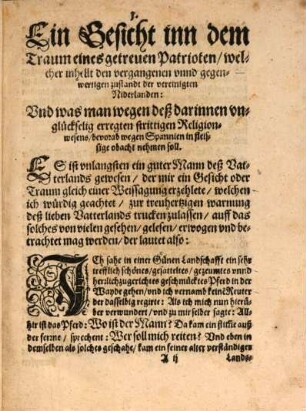 Ein Gesicht inn dem
Traum eines getreuen Patrioten/ wel-
cher inhelt den vergangenen vnnd gegen-
wertigen zustandt der vereinigten
Niderlanden:
Vnd was man wegen deß darinnen vn-
glückselig erregten strittigen Religion-
wesens/ bevorab wegen Spannien in fleis-
sige obacht nehmen soll.
ES ist vnlangsten ein guter Mann deß Vat-
terlands gewesen/ der mir ein Gesicht oder
Traum gleich einer Weissagung erzehlete/ welchen
ich würdig geachtet/ zur treuhertzigen warnung
deß lieben Vatterlands trucken zulassen/ auff das
solches von vielen gesehen/ gelesen/ erwogen vnd be-
trachtet mag werden/ der lautet also:
ICh sahe in einer Günen Landschafft ein sehr
trefflich schönes/ gesatteltes/ gezeumtes vnnd
herrlich zugerichtes geschmücktes Pferd in der
Wayde gehen/ vnd ich vernamb kein Reuter
der dasselbig regirte: Als ich mich nun hierü-
ber verwundert/ vnd zu mir selber sagte: All-
hir ist das Pferd: Wo ist der Mann? Da kam ein stiffle auß
der ferne/ sprechent: Wer soll mich reiten? Vnd eben in
demselben als solches geschahe/ kam ein feiner alter verständiger
A ij Lands-